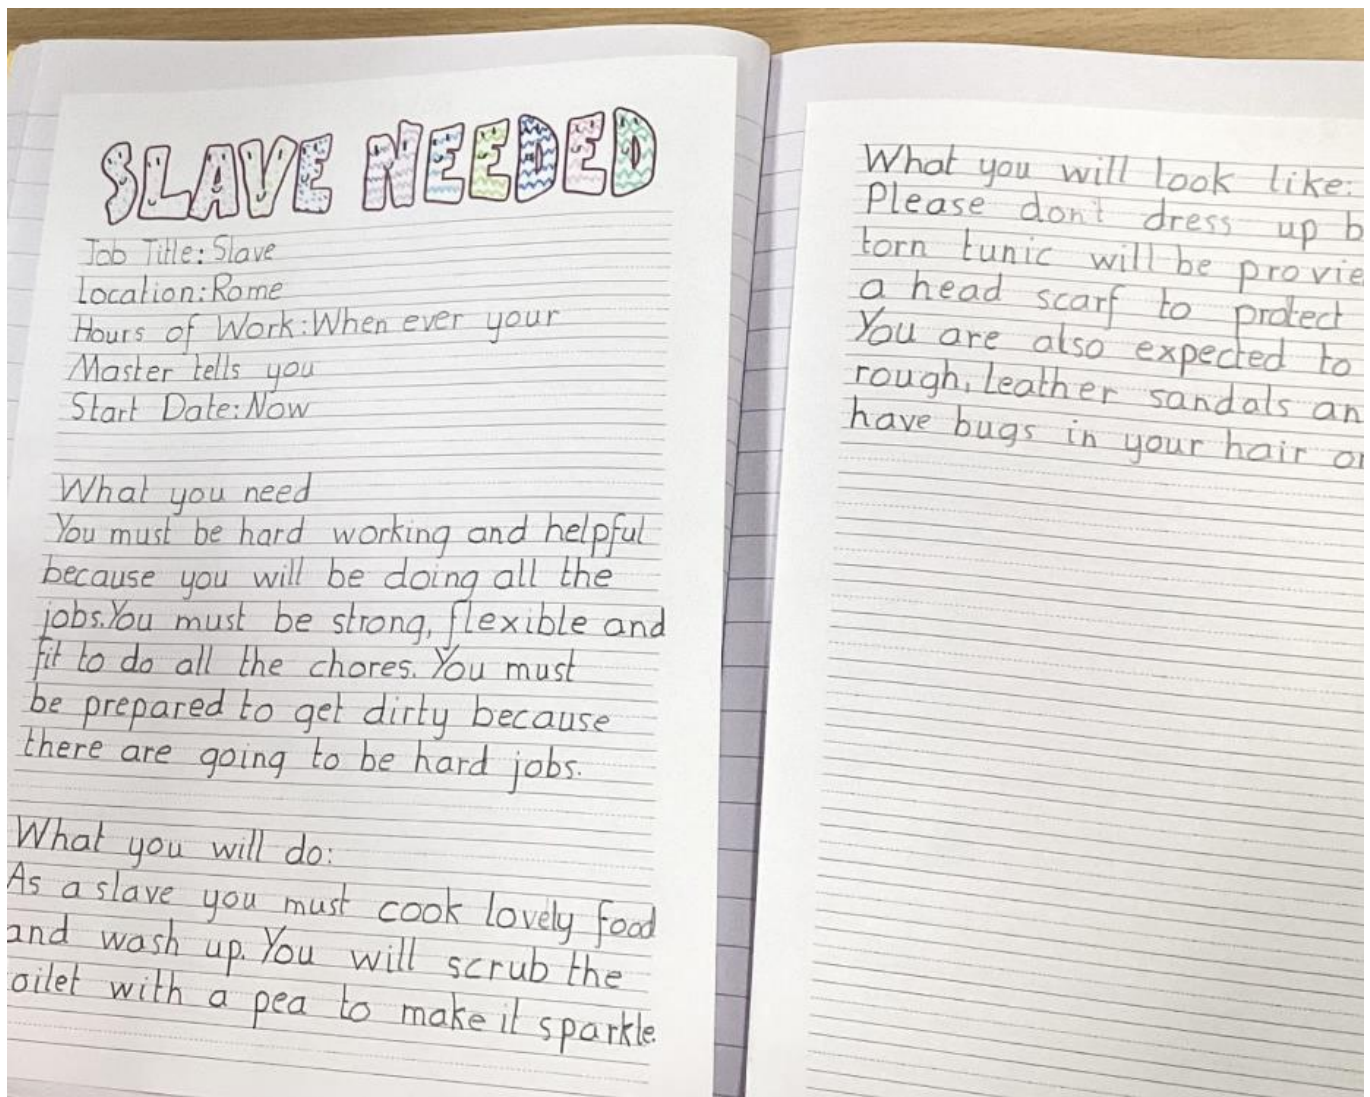 SLAVE NEEDED
Job Title: Slave
Location: Rome
Hours of Work: When ever your
Master tells you
Start Date: Now
What you need
You must be hard working and helpful
because you will be doing all the
jobs. You must be strong, flexible and
fit to do all the chores. You must
be prepared to get dirty because
there are going to be hard jobs.
What you will do:
As a slave you must cook lovely food
and wash up. You will scrub the
oilet with a pea to make it sparkle.
What you will look like:
Please don't dress up b
torn tunic will be provie
a head scarf to protect
You are also expected to
rough, leather sandals an
have bugs in your hair or